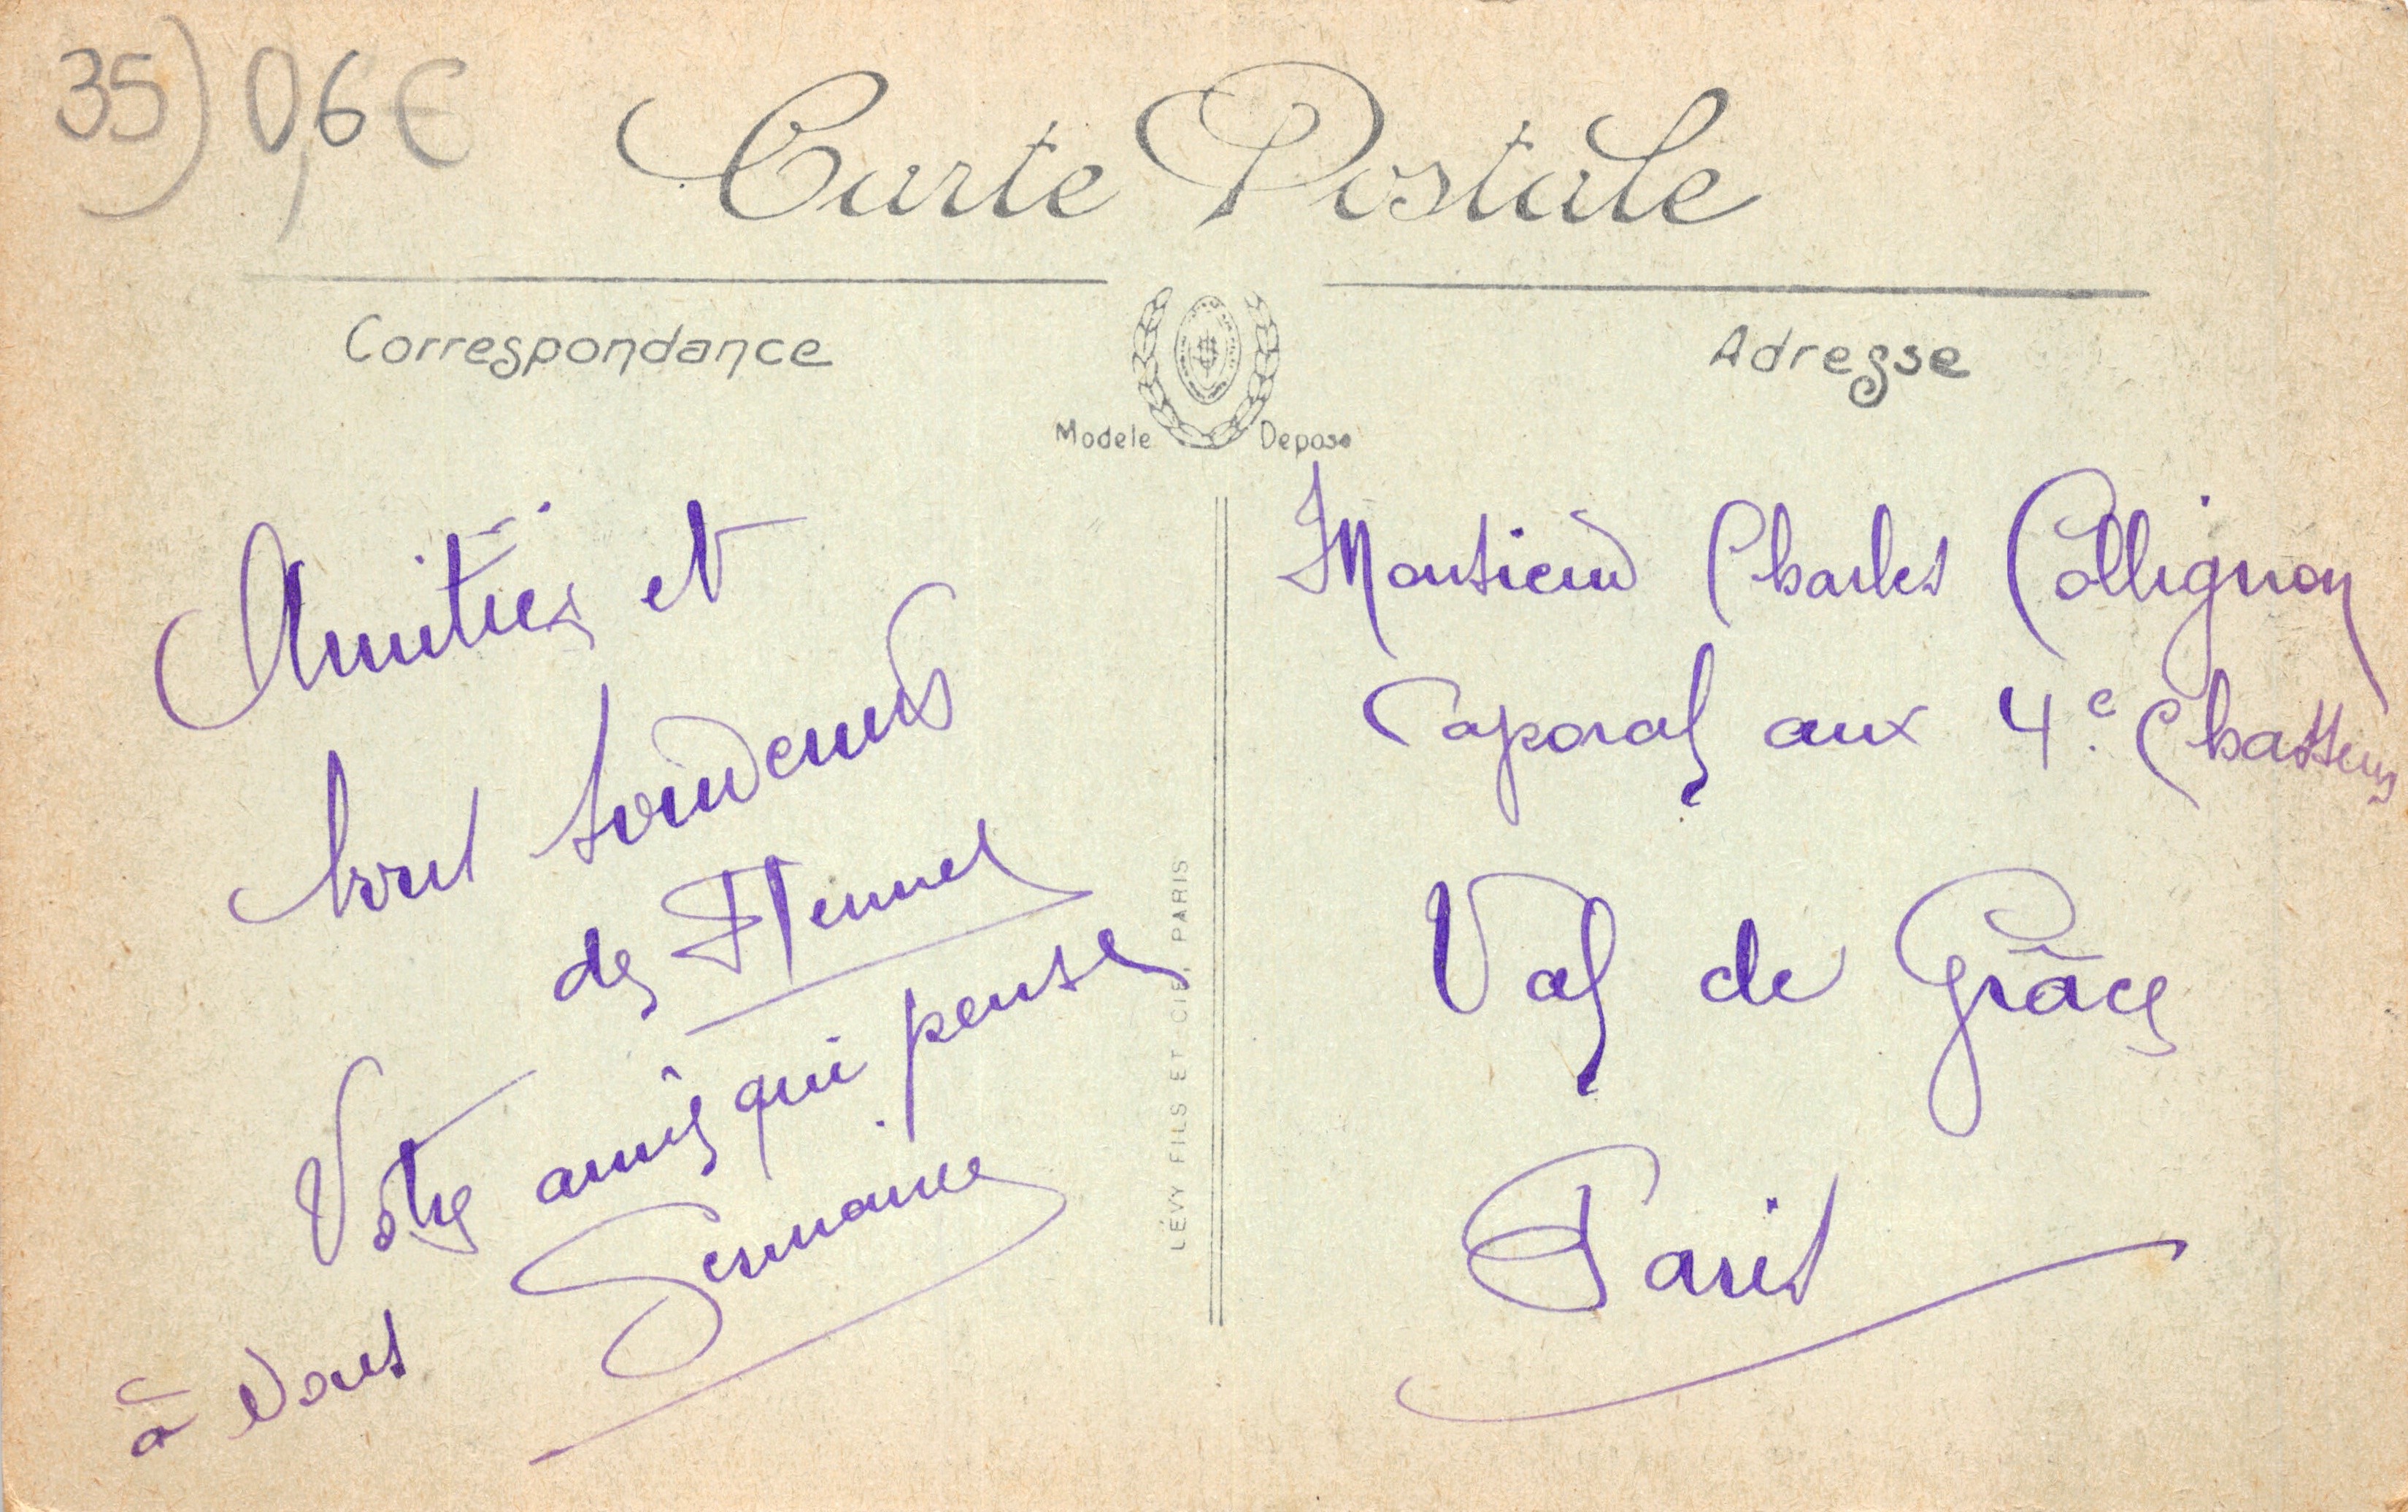 35) 0,6 €
Carte Postale
Correspondance
Adresse
Modele Depose
Amitiés et
bons souvenirs
de Rennes
Votre amie qui pense
à vous Germaine
LÉVY FILS ET CIE, PARIS
Monsieur Charles Collignon
Caporal aux 4e Chasseurs
Val de Grâce
Paris